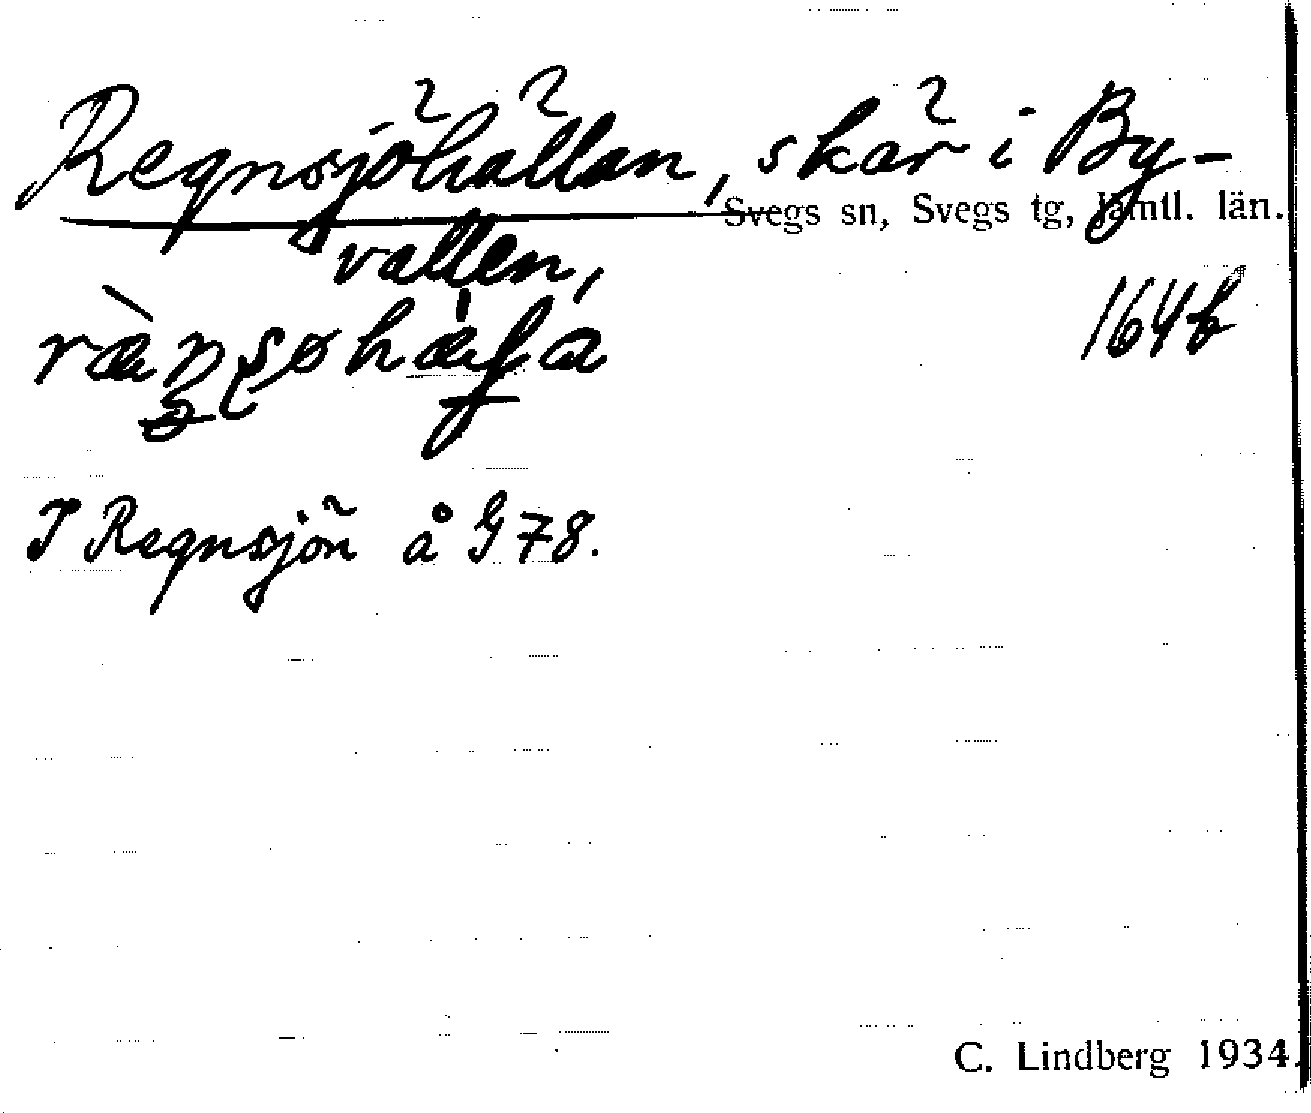 Regnsjöhällan, skär i By-
Svegs sn, Svegs tg, Jämtl. län.
vallen,
164b
I Regnsjön å G 78.
C. Lindberg 1934.